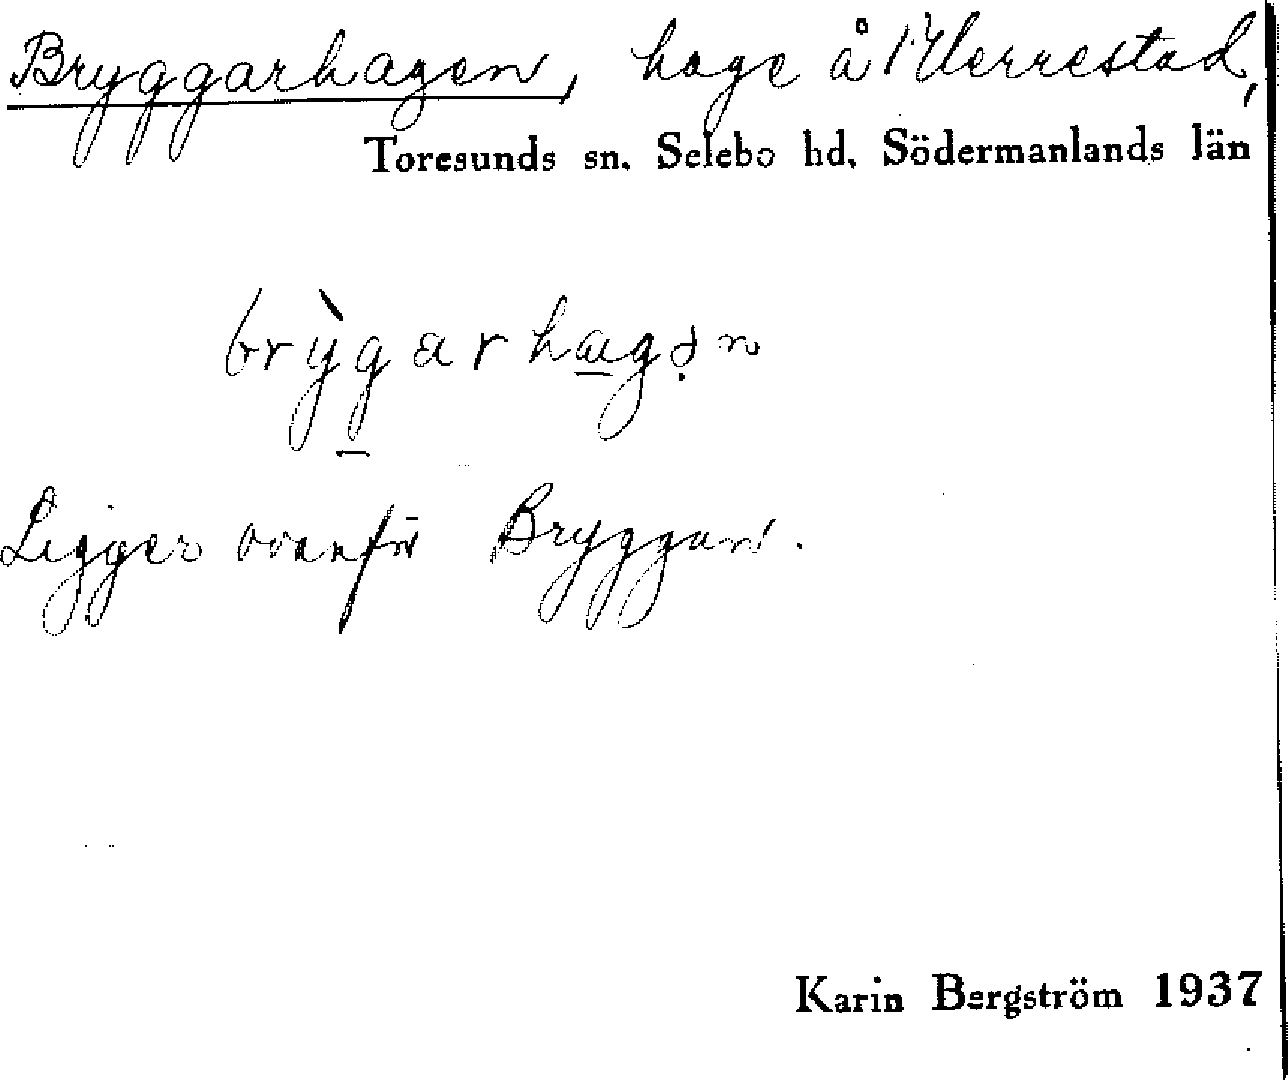 Bryggarhagen, hage å 1 Herrestad,
Toresunds sn. Selebo hd. Södermanlands län
brỳg̲arha̲gə̣n
Ligger ovanför Bryggan.
Karin Bergström 1937